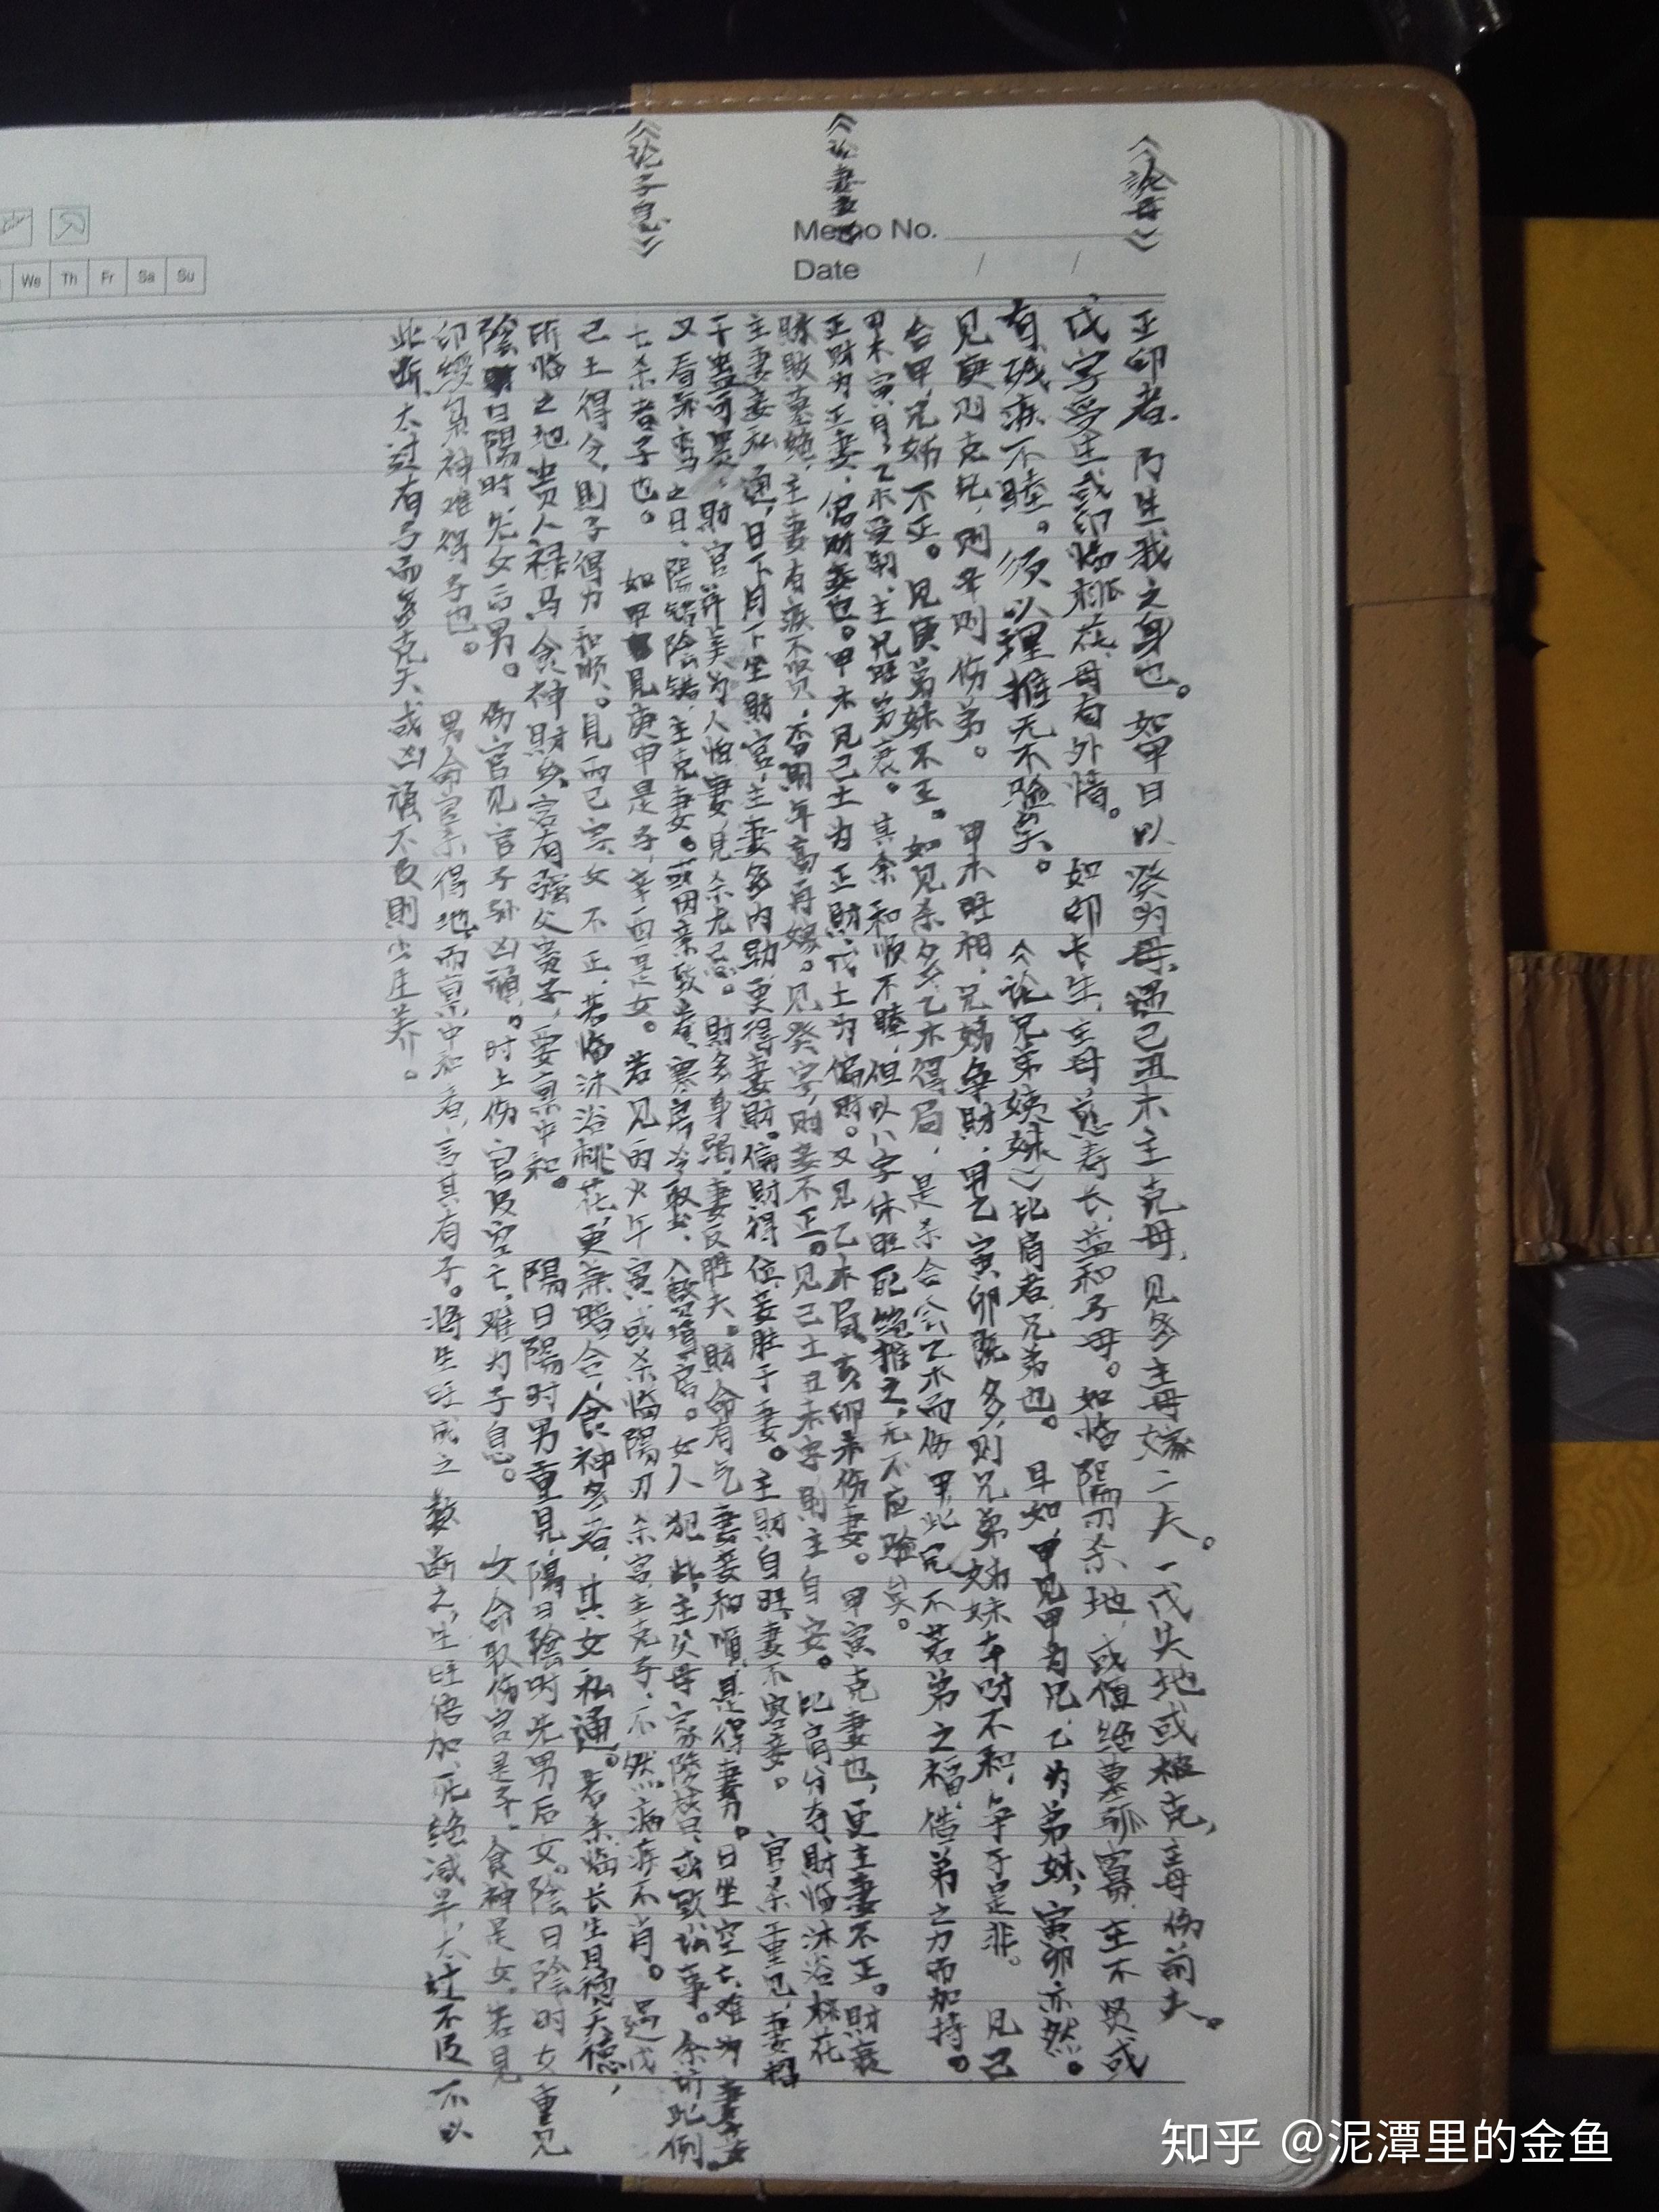 《论母》
正印者，乃生我之身也。如甲日以癸为母，遇己丑木主克母，见多主母嫁二夫。一戊失地或被克，主母伤前夫。
戊字受生或印临桃花，母有外情。如印长生，主母慈寿长，益和子母。如临陽刃杀地，或值绝墓孤寡，主不贤或
有残疾不睦。须以理推无不验矣。 今论兄弟姨妹〉比肩者兄弟也。且如，甲见甲为兄，乙为弟妹，寅卯亦然。
见庚则克兄，则辛则伤弟。 甲木旺相，兄姊争财，甲乙寅卯既多，则兄弟姊妹车財不和，争于是非。 见己
合甲，兄姊不正。见庚弟妹不正。如见杀多，乙木得局，是杀合会乙木而伤甲，此兄不若弟之福，借弟之力而加持。
甲木寅月，乙木受制，主兄旺弟衰。其余和順不睦，但以八字休旺死绝推之，无不应验矣。
《论妻妾》
正财为正妻，偏财妾也。甲木见己土为正財，戊土为偏財。又见乙木局，亥卯未伤妻。甲寅克妻也，更主妻不正。財衰
財敗墓绝，主妻有疾不贤，否則年高再嫁。见癸字，則妾不正。见己土丑未字，則主自安。比肩分夺，財临沐浴桃花
主妻妾私通，日下月下坐財宫，主妻多内助，更得妻財。偏財得位，妾胜于妻。主財自旺，妻不容妾。 官杀重见，妻招
干蛊可畏，財官并美为人怕妻，见杀尤忌。財多身弱，妻反胜夫。財命有气，妻妾和順，是得妻力。日坐空亡，难为妻妾。
又看孤鸾之日，陽错陰错，主克妻。或因亲致 寒房冷娶，入赘填房。女人犯此，主父母家陵 或致讼事。余诸此例。
《论子息》
七杀者子也。如甲見庚申是子，辛酉是女。若见丙火午寅，或杀临陽刃杀宫，主克子，不然病疾不肖。遇戊
己土得令，則子得力和順。見丙己字，女不正，若临沐浴桃花，更兼暗合，食神多者，其女私通。若杀临长生月德天德，
所临之地贵人禄马，食神財 言有强父贵子，要禀中和。 陽日陽时男重見，陽日陰时先男后女。陰日陰时女重见
陰日陽时，先女后男。 伤官见官子孙凶頑。时上伤官及空亡，难为子息。 女命取伤官是子，食神是女。若見
印绶枭神难得子也。 男命官杀得地，而禀中和者，言其有子。将生旺成之数断之，生旺倍加，死绝减半，太过不及不以
此断。太过有子而多克夭，或凶頑，不及則少庄养。
Memo No.
Date / /
We Th Fr Sa Su
知乎 @泥潭里的金鱼